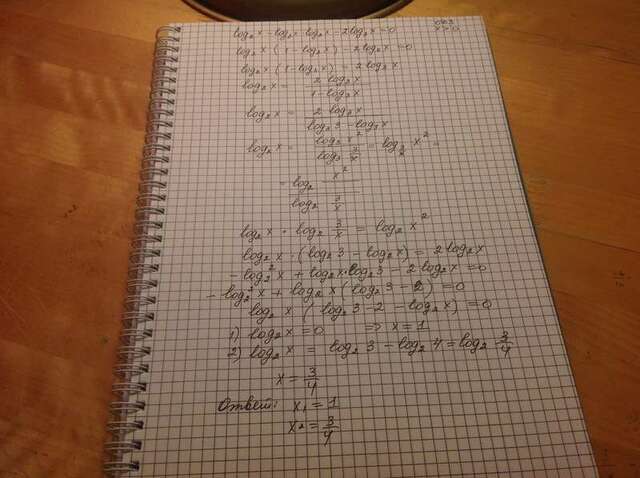 log₂x - log₂x · log₃x - 2log₃x = 0
x > 0
log₂x (1 - log₃x) - 2log₃x = 0
log₂x (1 - log₃x) = 2log₃x
log₂x = 2log₃x / (1 - log₃x)
log₂x = 2log₃x / (log₃3 - log₃x)
= log₂x² / log₂(3/x)
log₂x · log₂(3/x) = log₂x²
log₂x · (log₂3 - log₂x) = 2log₂x
- log₂²x + log₂x · log₂3 - 2log₂x = 0
- log₂²x + log₂x (log₂3 - 2) = 0
log₂x (log₂3 - 2 - log₂x) = 0
1) log₂x = 0 => x = 1
2) log₂x = log₂3 - log₂4 = log₂ 3/4
x = 3/4
Ответ: x₁ = 1
x₂ = 3/4